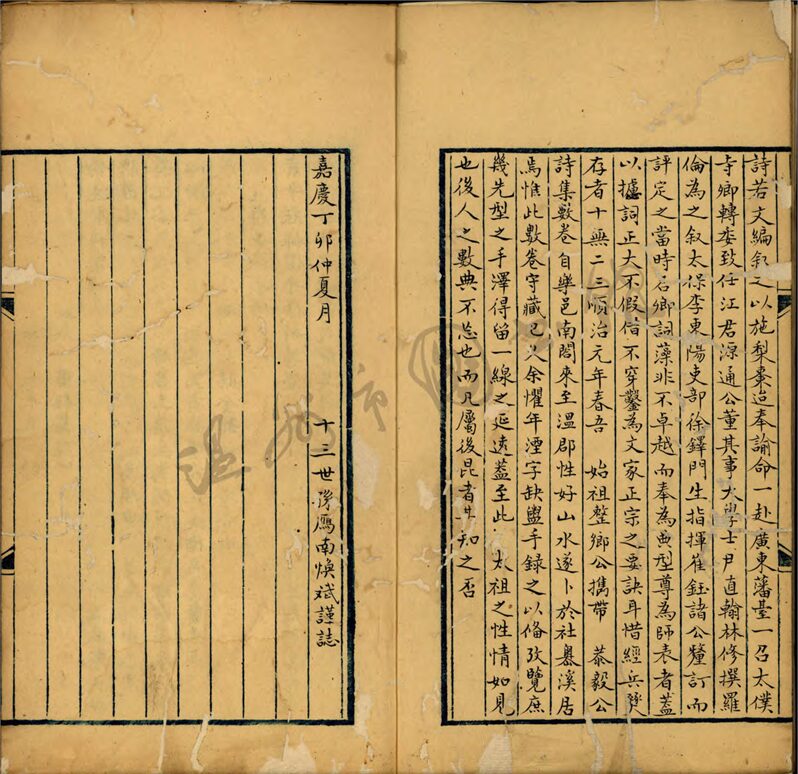 詩若文編叙之以施梨棗迨奉諭命一赴廣東藩臺一召太僕
寺卿轉委致任江君源通公董其事大學士尹直翰林修撰羅
倫為之叙太保李東陽吏部徐鐸門生指揮崔鈺諸公釐訂而
評定之當時名卿詞藻非不卓越而奉為典型尊為師表者蓋
以攄詞正大不假借不穿鑿為文家正宗之要訣耳惜經兵燹
存者十無二三順治元年春吾 始祖整卿公攜帶 恭毅公
詩集數卷自樂邑南閣來至溫郡性好山水遂卜於社𡺸溪居
焉惟此數卷守藏已久余懼年湮字缺盥手錄之以俻攷覽庶
幾先型之手澤得留一線之延遠蓋至此 太祖之性情如見
也後人之數典不忘也而凡屬後昆者其知之否
嘉慶丁卯仲夏月 十三世孫鴈南煥斌謹誌
溫州市圖